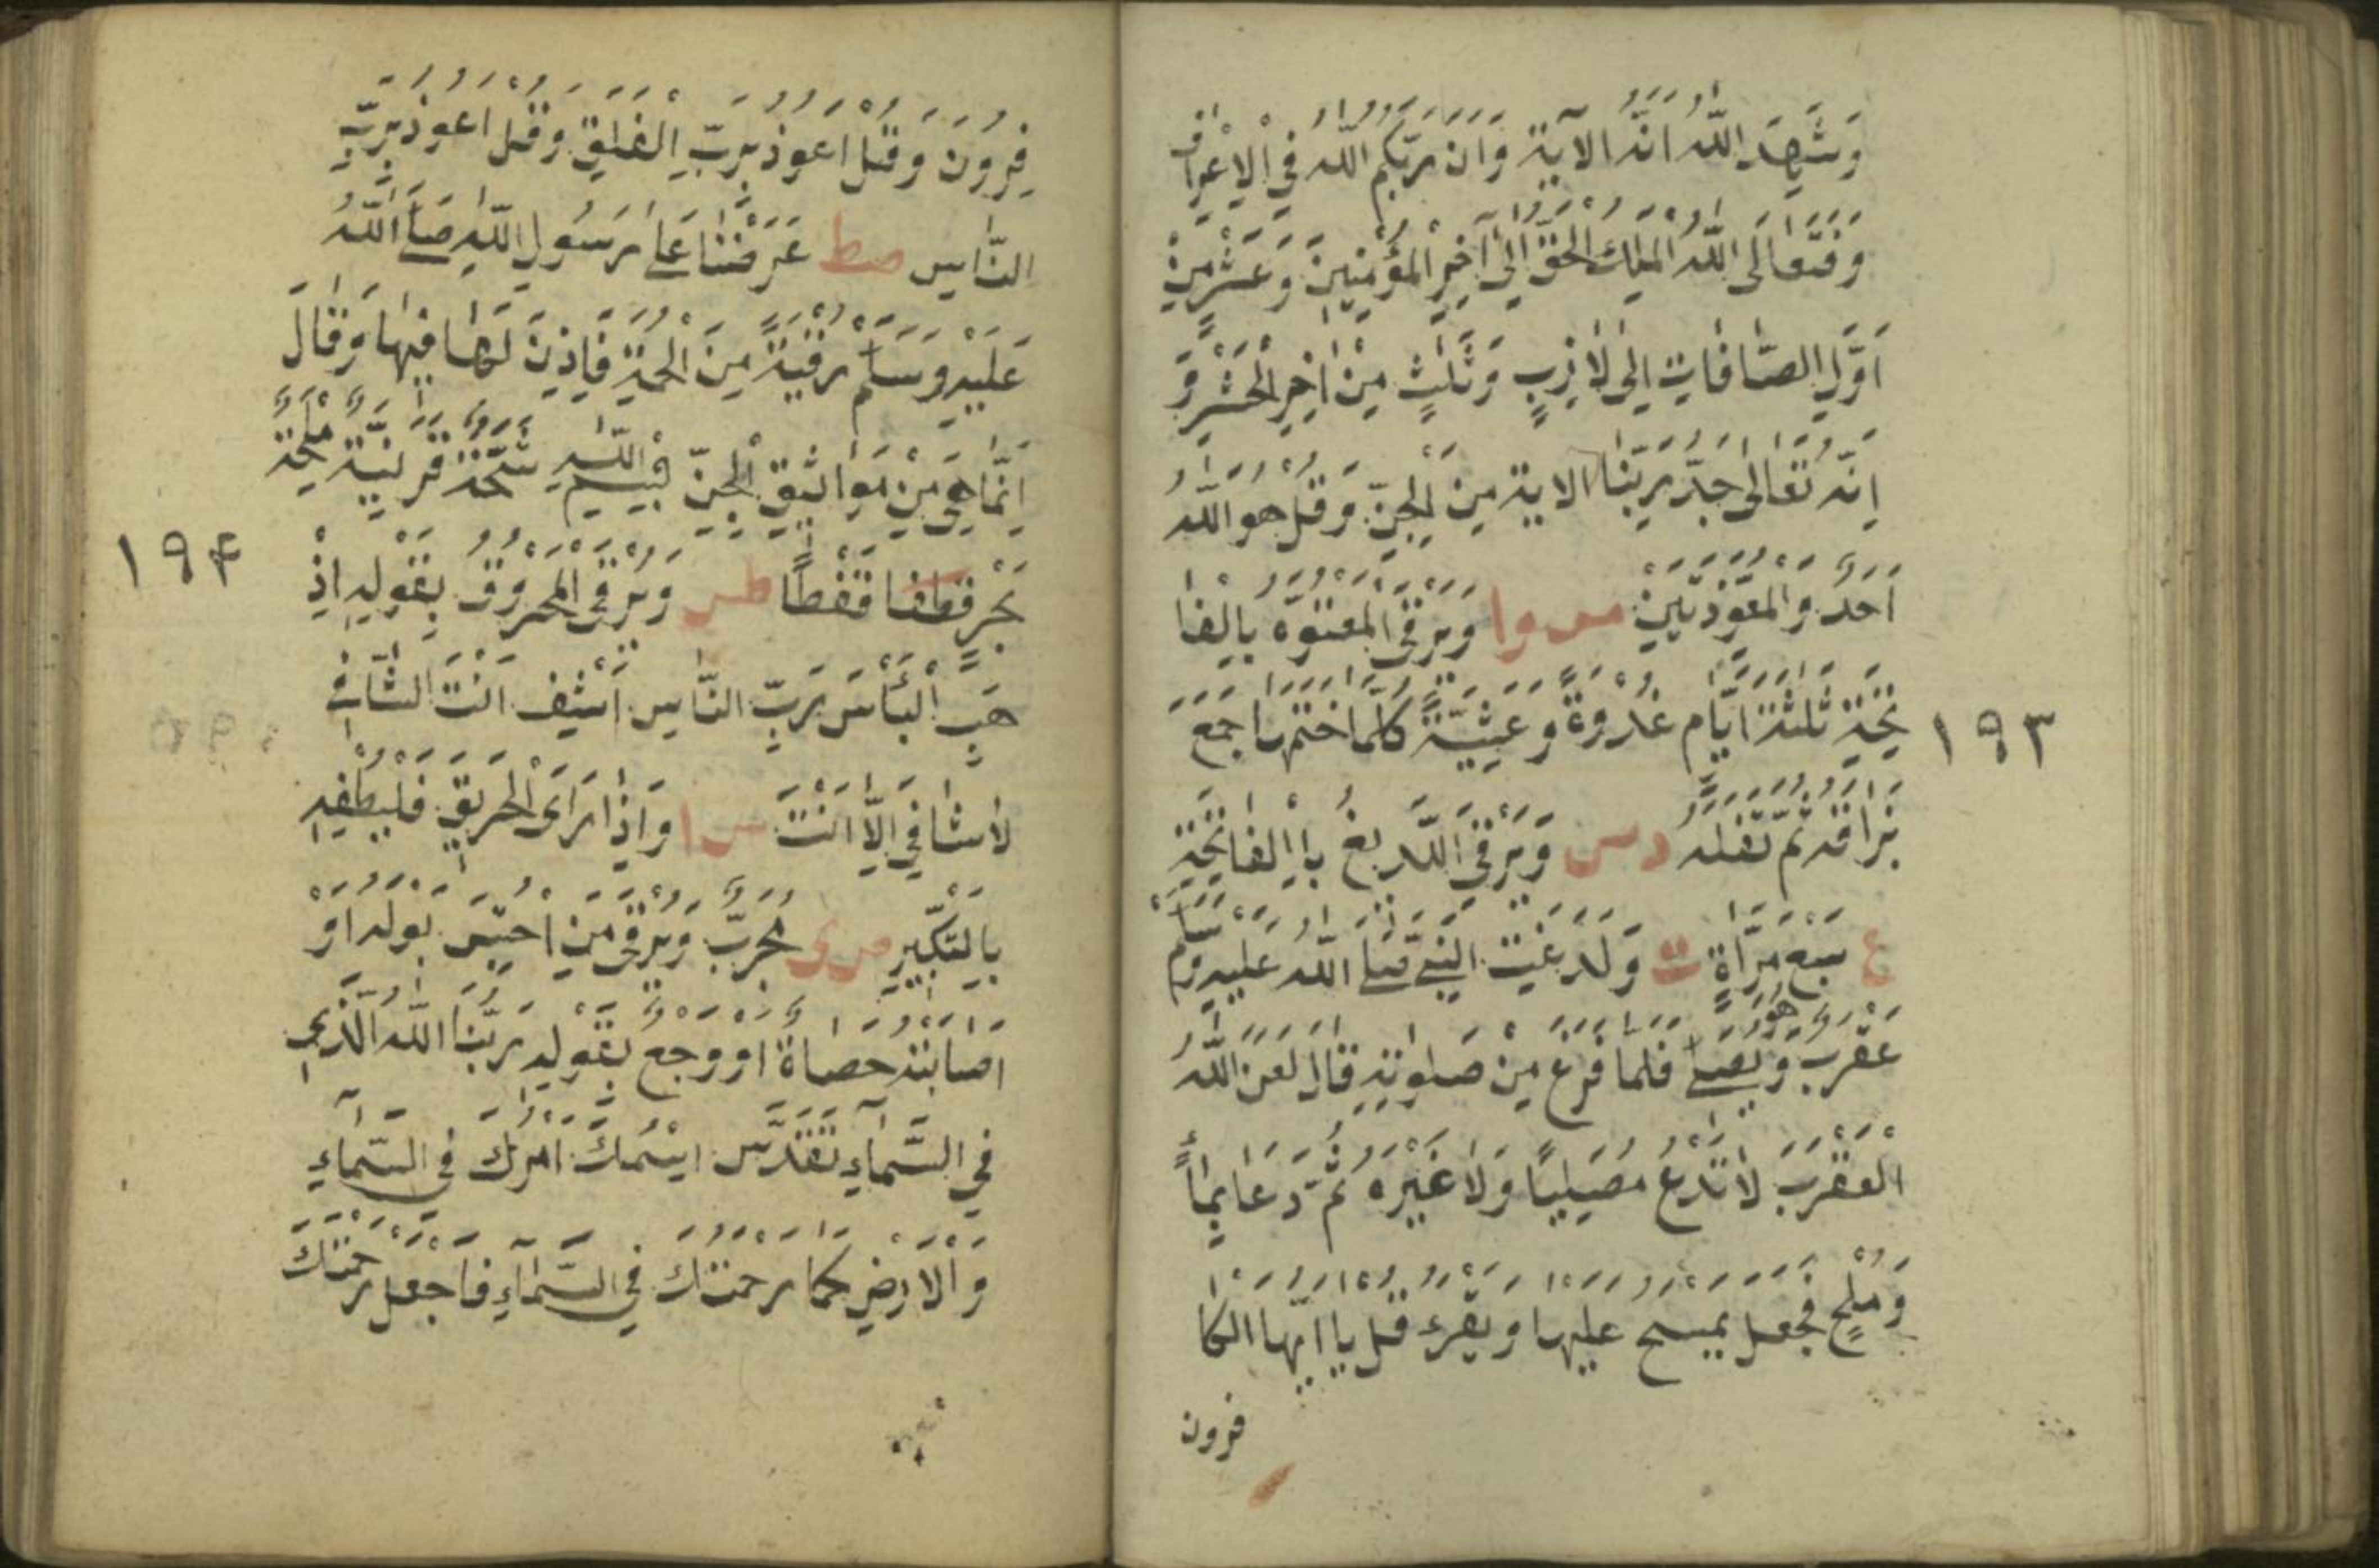 وَشَهِدَ اللّٰهُ اَنَّهُ الْاٰيَةَ وَاِنَّ رَبَّكُمُ اللّٰهُ فِي الْاَعْرَافِ
وَفَتَعَالَى اللّٰهُ الْمَلِكُ الْحَقُّ اِلٰى اٰخِرِ الْمُؤْمِنِينَ وَعَشْرٍ مِنْ
اَوَّلِ الصَّافَاتِ اِلٰى لَازِبٍ وَثَلٰثٍ مِنْ اٰخِرِ الْحَشْرِ وَ
اِنَّهُ تَعَالٰى جَدُّ رَبِّنَا الاية مِنَ الْجِنِّ وَقُلْ هُوَ اللّٰهُ
اَحَدٌ وَالْمُعَوِّذَتَيْنِ مس وا وَيُرْقَى الْمَعْتُوهُ بِالْفَا
تِحَةِ ثَلٰثَةَ اَيَّامٍ غُدْوَةً وَعَشِيَّةً كُلَّمَا خَتَمَهَا جَمَعَ
بُزَاقَهُ ثُمَّ تَفَلَهُ دس وَيُرْقَى اللَّدِيغُ بِالْفَاتِحَةِ
ع سَبْعَ مَرَّاةٍ ت وَلَدَغَتِ النَّبِيَّ صَلَّى اللّٰهُ عَلَيْهِ وَسَلَّمَ
عَقْرَبٌ وَهُوَ يُصَلِّي فَلَمَّا فَرَغَ مِنْ صَلٰوتِهِ قَالَ لَعَنَ اللّٰهُ
الْعَقْرَبَ لَا تَدَعُ مُصَلِّيًا وَلَا غَيْرَهُ ثُمَّ دَعَا بِمَاءٍ
وَمِلْحٍ فَجَعَلَ يَمْسَحُ عَلَيْهَا وَيَقْرَءُ قُلْ يَا اَيُّهَا الْكَا
فرون
١٩٣
فِرُونَ وَقُلْ اَعُوذُ بِرَبِّ الْفَلَقِ وَقُلْ اَعُوذُ بِرَبِّ
النَّاسِ صط عَرَضْنَا عَلٰى رَسُولِ اللّٰهِ صَلَّى اللّٰهُ
عَلَيْهِ وَسَلَّمَ رُقْيَةً مِنَ الْحُمَةِ فَاَذِنَ لَنَا فِيهَا وَقَالَ
اِنَّمَا هِيَ مِنْ مَوَاثِيقِ الْجِنِّ بِسْمِ اللّٰهِ شَجَّةٌ قَرَنِيَّةٌ مِلْحَةُ
بَحْرٍ قَفْطًا طس وَيُرْقَى الْمَحْرُوقُ بِقَوْلِهِ اَذْ
هِبِ الْبَأْسَ رَبَّ النَّاسِ اَشْفِ اَنْتَ الشَّافِي
لَا شَافِيَ اِلَّا اَنْتَ س ا وَاِذَا رَاَى الْحَرِيقَ فَلْيُطْفِهِ
بِالتَّكْبِيرِ ص ى مُجَرَّبٌ وَيُرْقَى مَنِ احْتُبِسَ بَوْلُهُ اَوْ
اَصَابَتْهُ حَصَاةٌ اَوْ وَجَعٌ بِقَوْلِهِ رَبُّنَا اللّٰهُ الَّذِي
فِي السَّمَاءِ تَقَدَّسَ اسْمُكَ اَمْرُكَ فِي السَّمَاءِ
وَالْاَرْضِ كَمَا رَحْمَتُكَ فِي السَّمَاءِ فَاجْعَلْ رَحْمَتَكَ
١٩٤